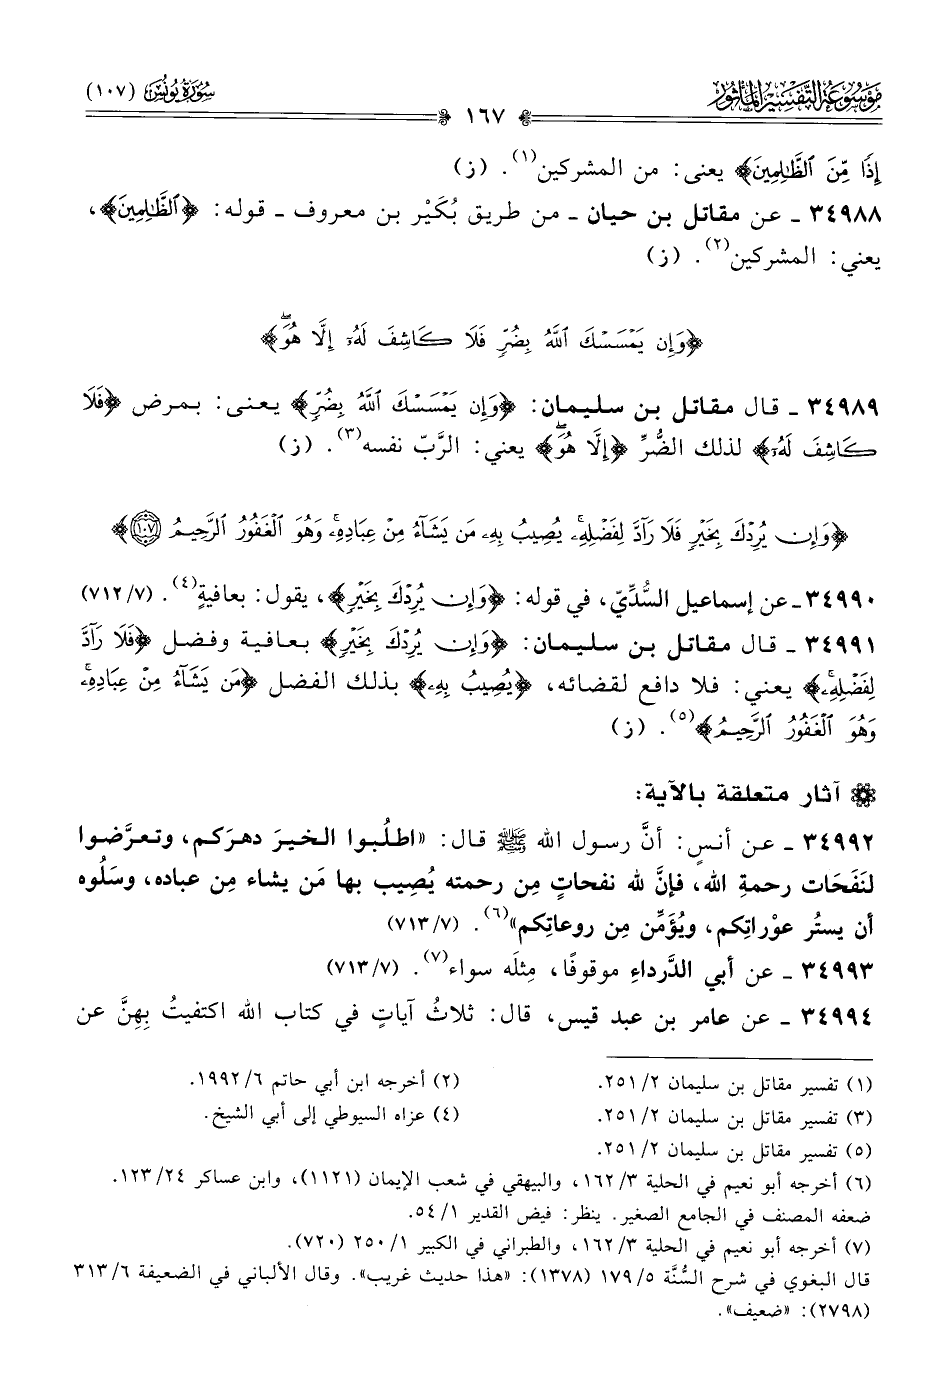 موسوعة التفسير المأثور
سورة يونس (١٠٧)
١٦٧
إِذًا مِّنَ ٱلظَّٰلِمِينَ﴾ يعني: من المشركين(١). (ز)
٣٤٩٨٨ ـ عن مقاتل بن حيان ـ من طريق بُكَيْر بن معروف ـ قوله: ﴿ٱلظَّٰلِمِينَ﴾،
يعني: المشركين(٢). (ز)
﴿وَإِن يَمْسَسْكَ ٱللَّهُ بِضُرٍّ فَلَا كَاشِفَ لَهُۥٓ إِلَّا هُوَۖ﴾
٣٤٩٨٩ ـ قال مقاتل بن سليمان: ﴿وَإِن يَمْسَسْكَ ٱللَّهُ بِضُرٍّ﴾ يعني: بمرض ﴿فَلَا
كَاشِفَ لَهُۥٓ﴾ لذلك الضُّرِّ ﴿إِلَّا هُوَۖ﴾ يعني: الرَّبّ نفسه(٣). (ز)
﴿وَإِن يُرِدْكَ بِخَيْرٍ فَلَا رَآدَّ لِفَضْلِهِۦۚ يُصِيبُ بِهِۦ مَن يَشَآءُ مِنْ عِبَادِهِۦۚ وَهُوَ ٱلْغَفُورُ ٱلرَّحِيمُ ١٠٧﴾
٣٤٩٩٠ ـ عن إسماعيل السُّدِّيّ، في قوله: ﴿وَإِن يُرِدْكَ بِخَيْرٍ﴾، يقول: بعافيةٍ(٤). (٧/ ٧١٢)
٣٤٩٩١ ـ قال مقاتل بن سليمان: ﴿وَإِن يُرِدْكَ بِخَيْرٍ﴾ بعافية وفضل ﴿فَلَا رَآدَّ
لِفَضْلِهِۦۚ﴾ يعني: فلا دافع لقضائه، ﴿يُصِيبُ بِهِۦ﴾ بذلك الفضل ﴿مَن يَشَآءُ مِنْ عِبَادِهِۦۚ
وَهُوَ ٱلْغَفُورُ ٱلرَّحِيمُ﴾(٥). (ز)
آثار متعلقة بالآية:
٣٤٩٩٢ ـ عن أنسٍ: أنَّ رسول الله ﷺ قال: «اطلُبوا الخيرَ دهرَكم، وتعرَّضوا
لنَفَحَات رحمةِ الله، فإنَّ لله نفحاتٍ مِن رحمته يُصِيب بها مَن يشاء مِن عباده، وسَلُوه
أن يستُر عوْراتِكم، ويُؤَمِّن مِن روعاتِكم»(٦). (٧/ ٧١٣)
٣٤٩٩٣ ـ عن أبي الدَّرداءِ موقوفًا، مِثلَه سواء(٧). (٧/ ٧١٣)
٣٤٩٩٤ ـ عن عامر بن عبد قيس، قال: ثلاثُ آياتٍ في كتاب الله اكتفيتُ بِهِنَّ عن
(١) تفسير مقاتل بن سليمان ٢/ ٢٥١.
(٢) أخرجه ابن أبي حاتم ٦/ ١٩٩٢.
(٣) تفسير مقاتل بن سليمان ٢/ ٢٥١.
(٤) عزاه السيوطي إلى أبي الشيخ.
(٥) تفسير مقاتل بن سليمان ٢/ ٢٥١.
(٦) أخرجه أبو نعيم في الحلية ٣/ ١٦٢، والبيهقي في شعب الإيمان (١١٢١)، وابن عساكر ٢٤/ ١٢٣.
ضعفه المصنف في الجامع الصغير. ينظر: فيض القدير ١/ ٥٤.
(٧) أخرجه أبو نعيم في الحلية ٣/ ١٦٢، والطبراني في الكبير ١/ ٢٥٠ (٧٢٠).
قال البغوي في شرح السُّنَّة ٥/ ١٧٩ (١٣٧٨): «هذا حديث غريب». وقال الألباني في الضعيفة ٦/ ٣١٣
(٢٧٩٨): «ضعيف».